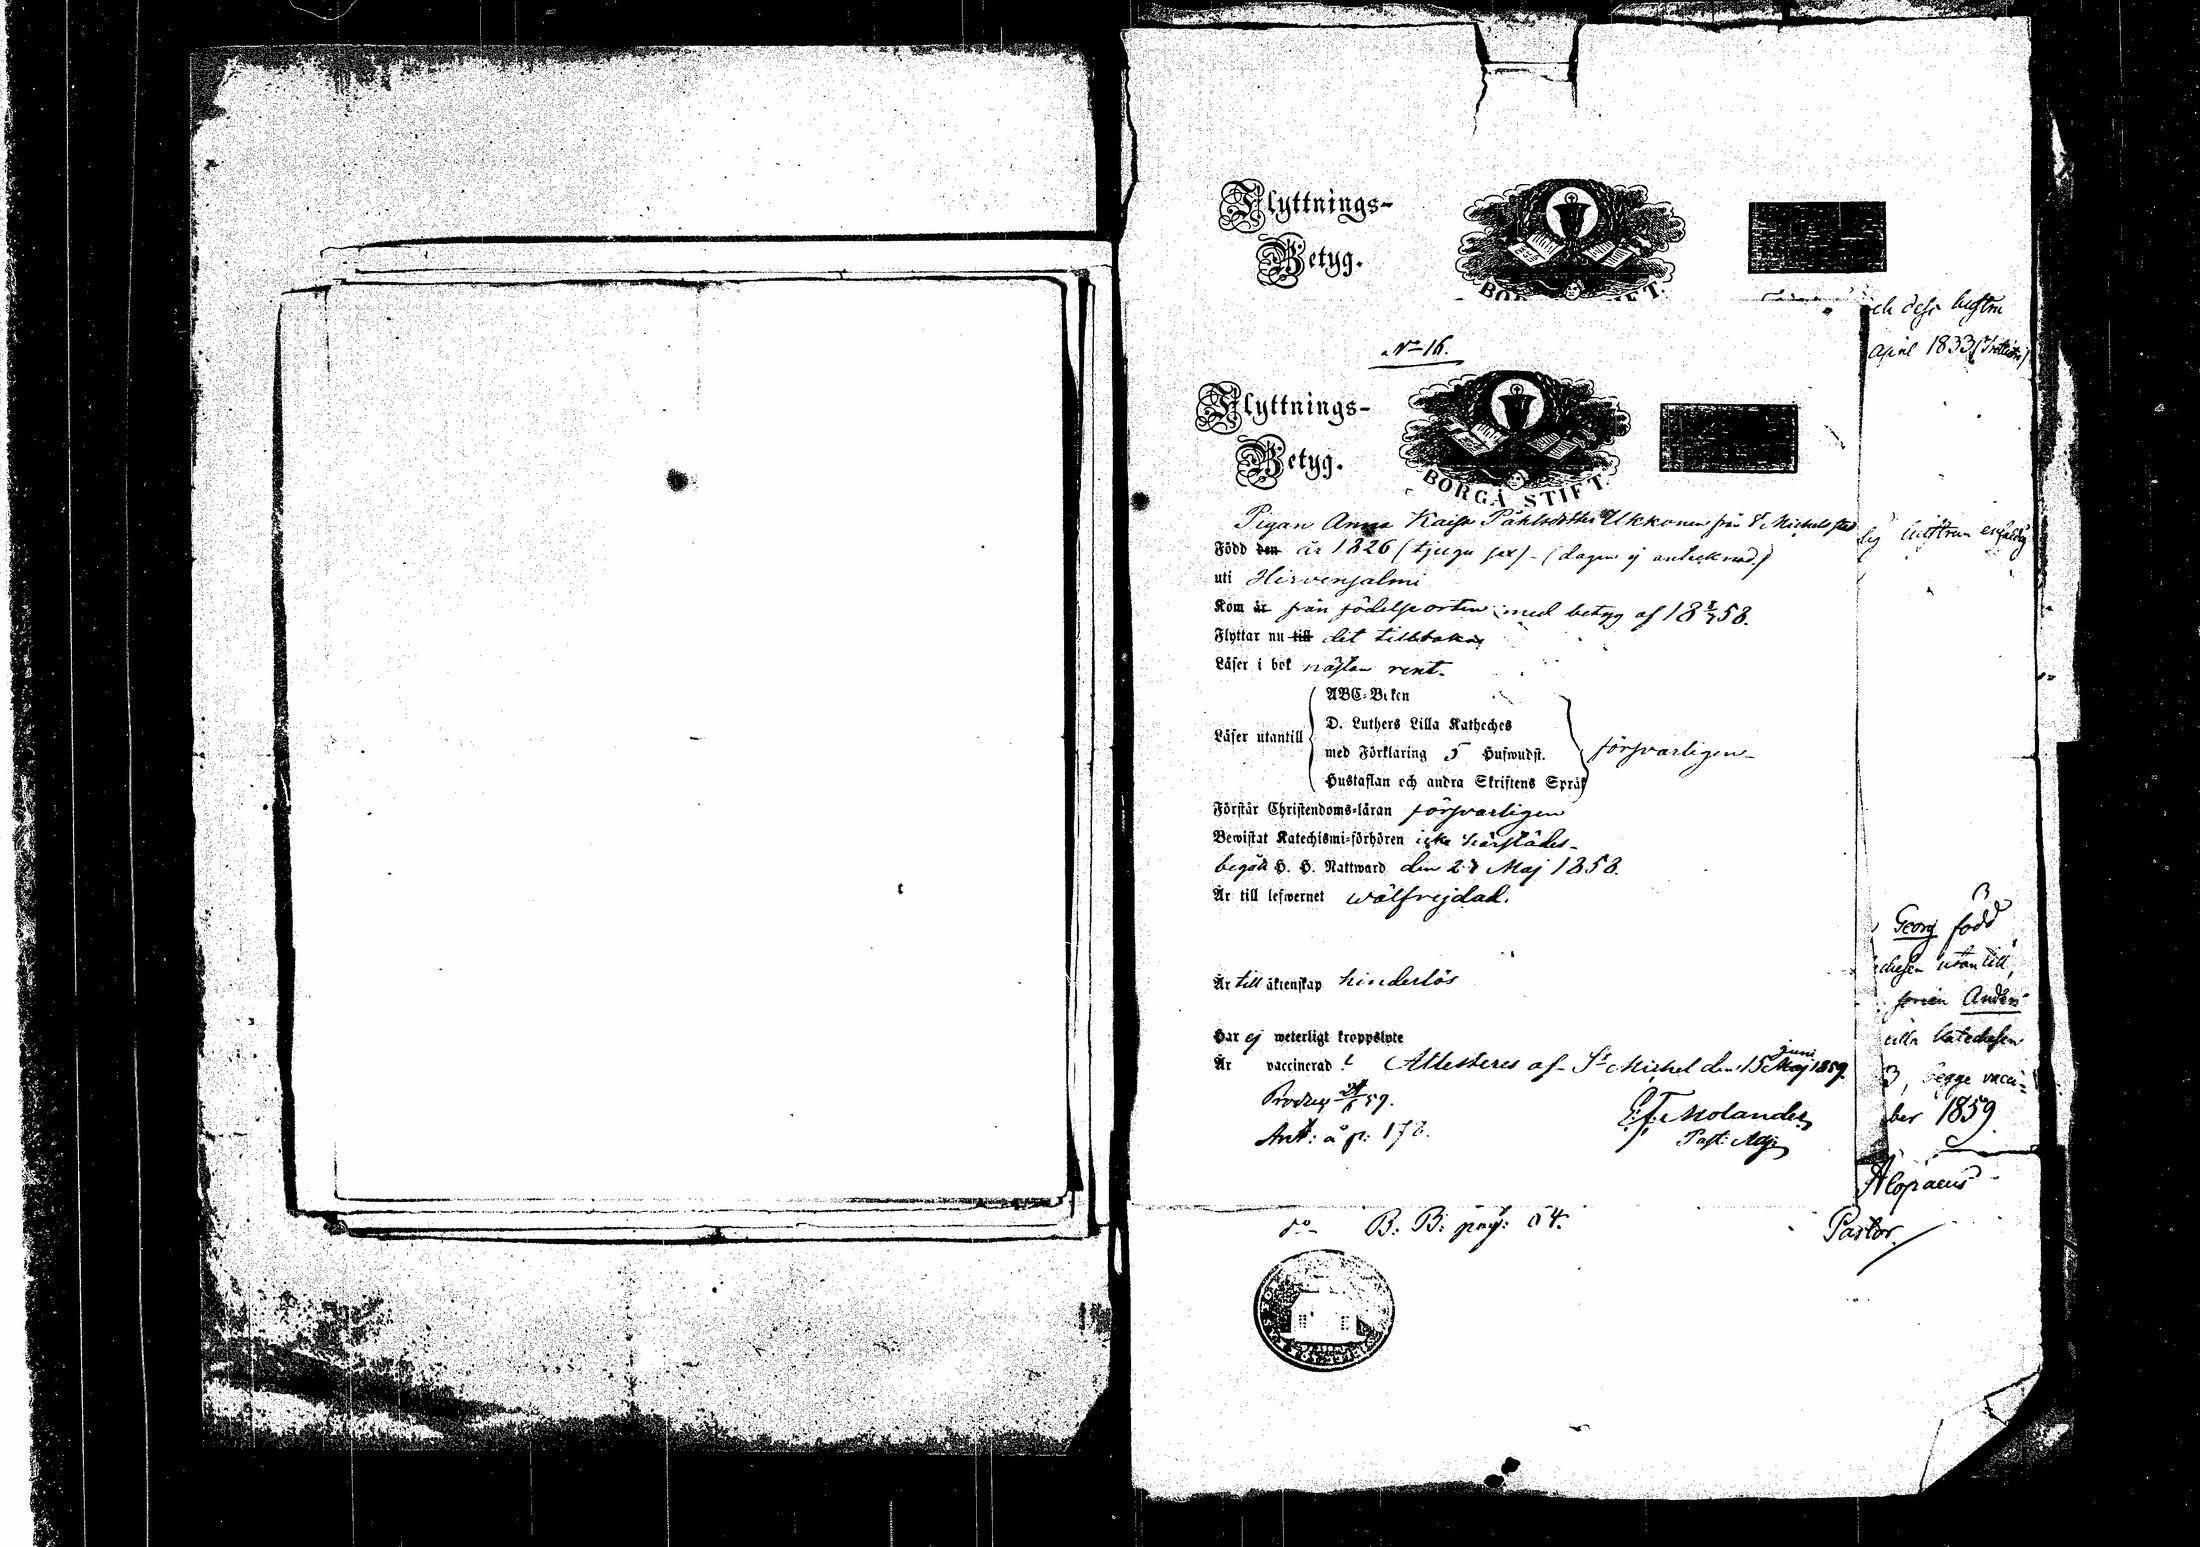 Flyttnings-
Betyg.
och dess hustru
April 1833
No 16.
Flyttnings-
Betyg.
BORGÅ STIFT.
Pigan Anna Kaisa Påhlsdotter Ukkonen från St Michels stad
Född den år 1826 (tjugu sex) - (dagen ej antecknad.)
uti Hirvensalmi
Kom år från födelseorten med betyg af 18 58.
Flyttar nu till det tillbaka
Läser i bok nästan rent.
ABC-Boken
D. Luthers Lilla Katheches
Läser utantill
med Förklaring 5 Hufwudst.
försvarligen
Hustaflan och andra Skriftens Språk
Förstår Christendoms-läran försvarligen
Bewistat Katechismi-förhören icke härstädes
begått H. H. Nattward den Maj 1858.
Är till lefwernet wälfrejdad.
Är till äktenskap hinderlös
Har ej weterligt kroppslyte
Är vaccinerad. Attesteras af St Michel den 15 Maj Juni 1859.
59.
Ant: å p: 178.
E. F. Molander
Past: Adj:
Georg född
utantill,
sonen Anders
lilla katechesen
begge vacci-
ber 1859.
Alopaeus
Pastor.
do B: B: pag: 54.